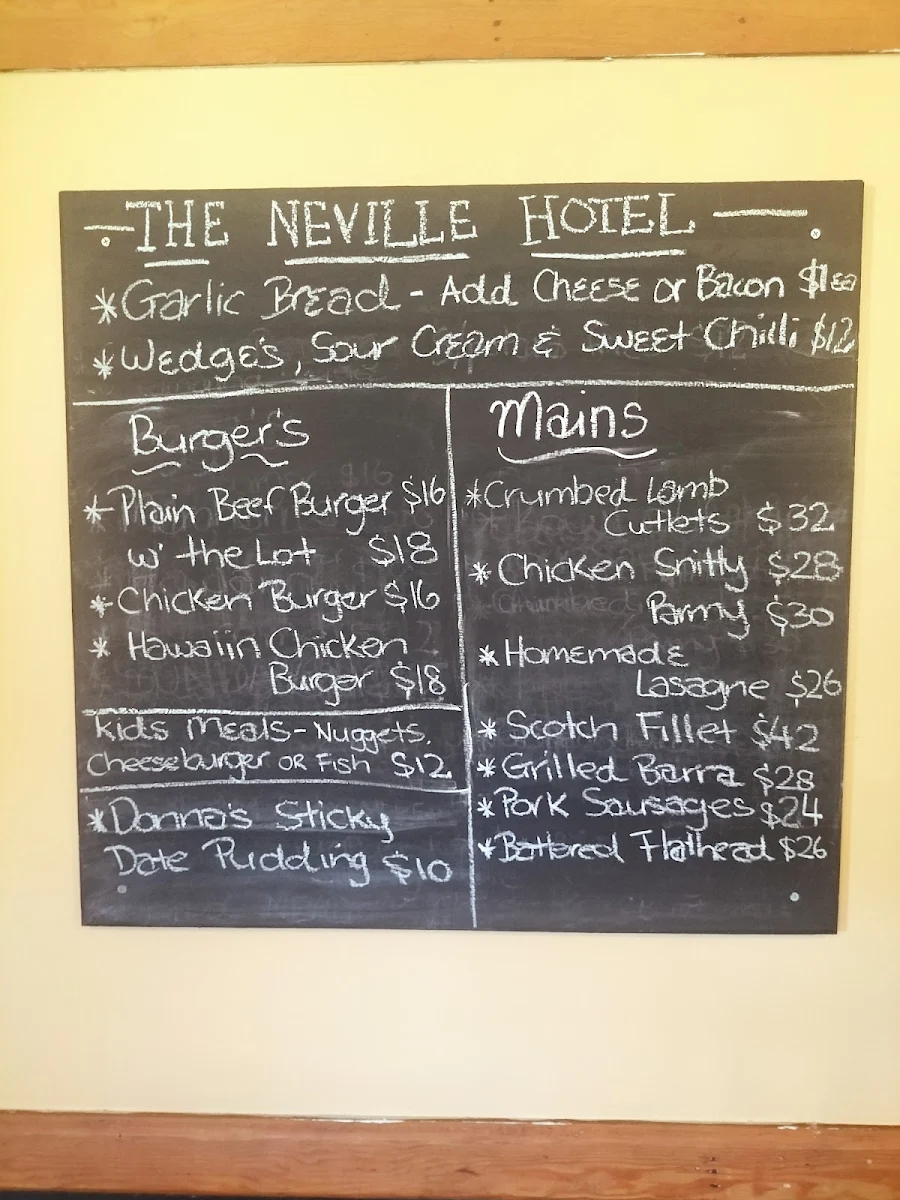 THE NEVILLE HOTEL
* Garlic Bread - Add Cheese or Bacon $1ea
* Wedge's, Sour Cream & Sweet Chilli $12
Burger's
* Plain Beef Burger $16
w' the Lot $18
* Chicken Burger $16
* Hawaiin Chicken
Burger $18
Kids Meals - Nuggets,
Cheeseburger OR Fish $12
* Donna's Sticky
Date Pudding $10
Mains
* Crumbed Lamb
Cutlets $32
* Chicken Snitty $28
Parmy $30
* Homemade
Lasagne $26
* Scotch Fillet $42
* Grilled Barra $28
* Pork Sausages $24
* Battered Flathead $26